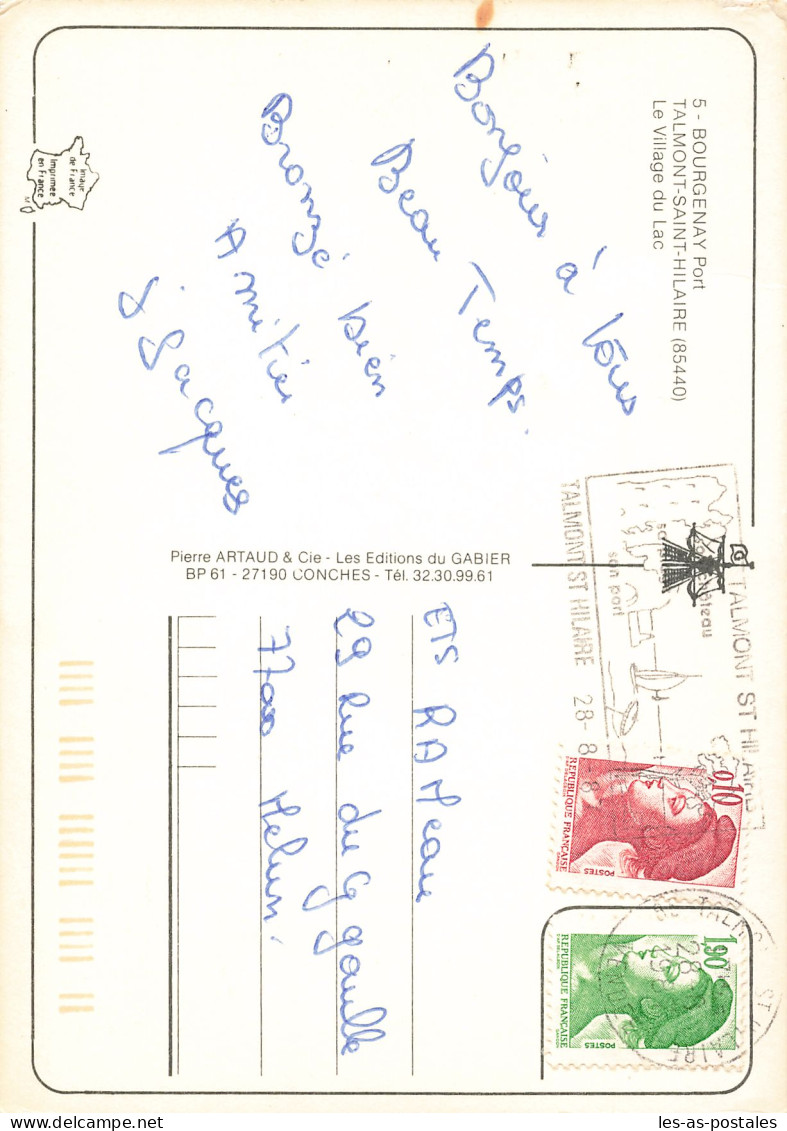 5 - BOURGENAY Port
TALMONT-SAINT-HILAIRE (85440)
Le Village du Lac
Bonjour à tous
Beau Temps
Bronzé bien
Amitié
Jacques
Image
de France
Imprimée
en France
Pierre ARTAUD & Cie - Les Editions du GABIER
BP 61 - 27190 CONCHES - Tél. 32.30.99.61
ETS RAMeau
29 Rue du G gaulle
77000 Melun.
TALMONT ST HILAIRE
son château
son port
TALMONT ST HILAIRE 28-8
0,10
REPUBLIQUE FRANÇAISE
POSTES
1,90
REPUBLIQUE FRANÇAISE
POSTES
les-as-postales